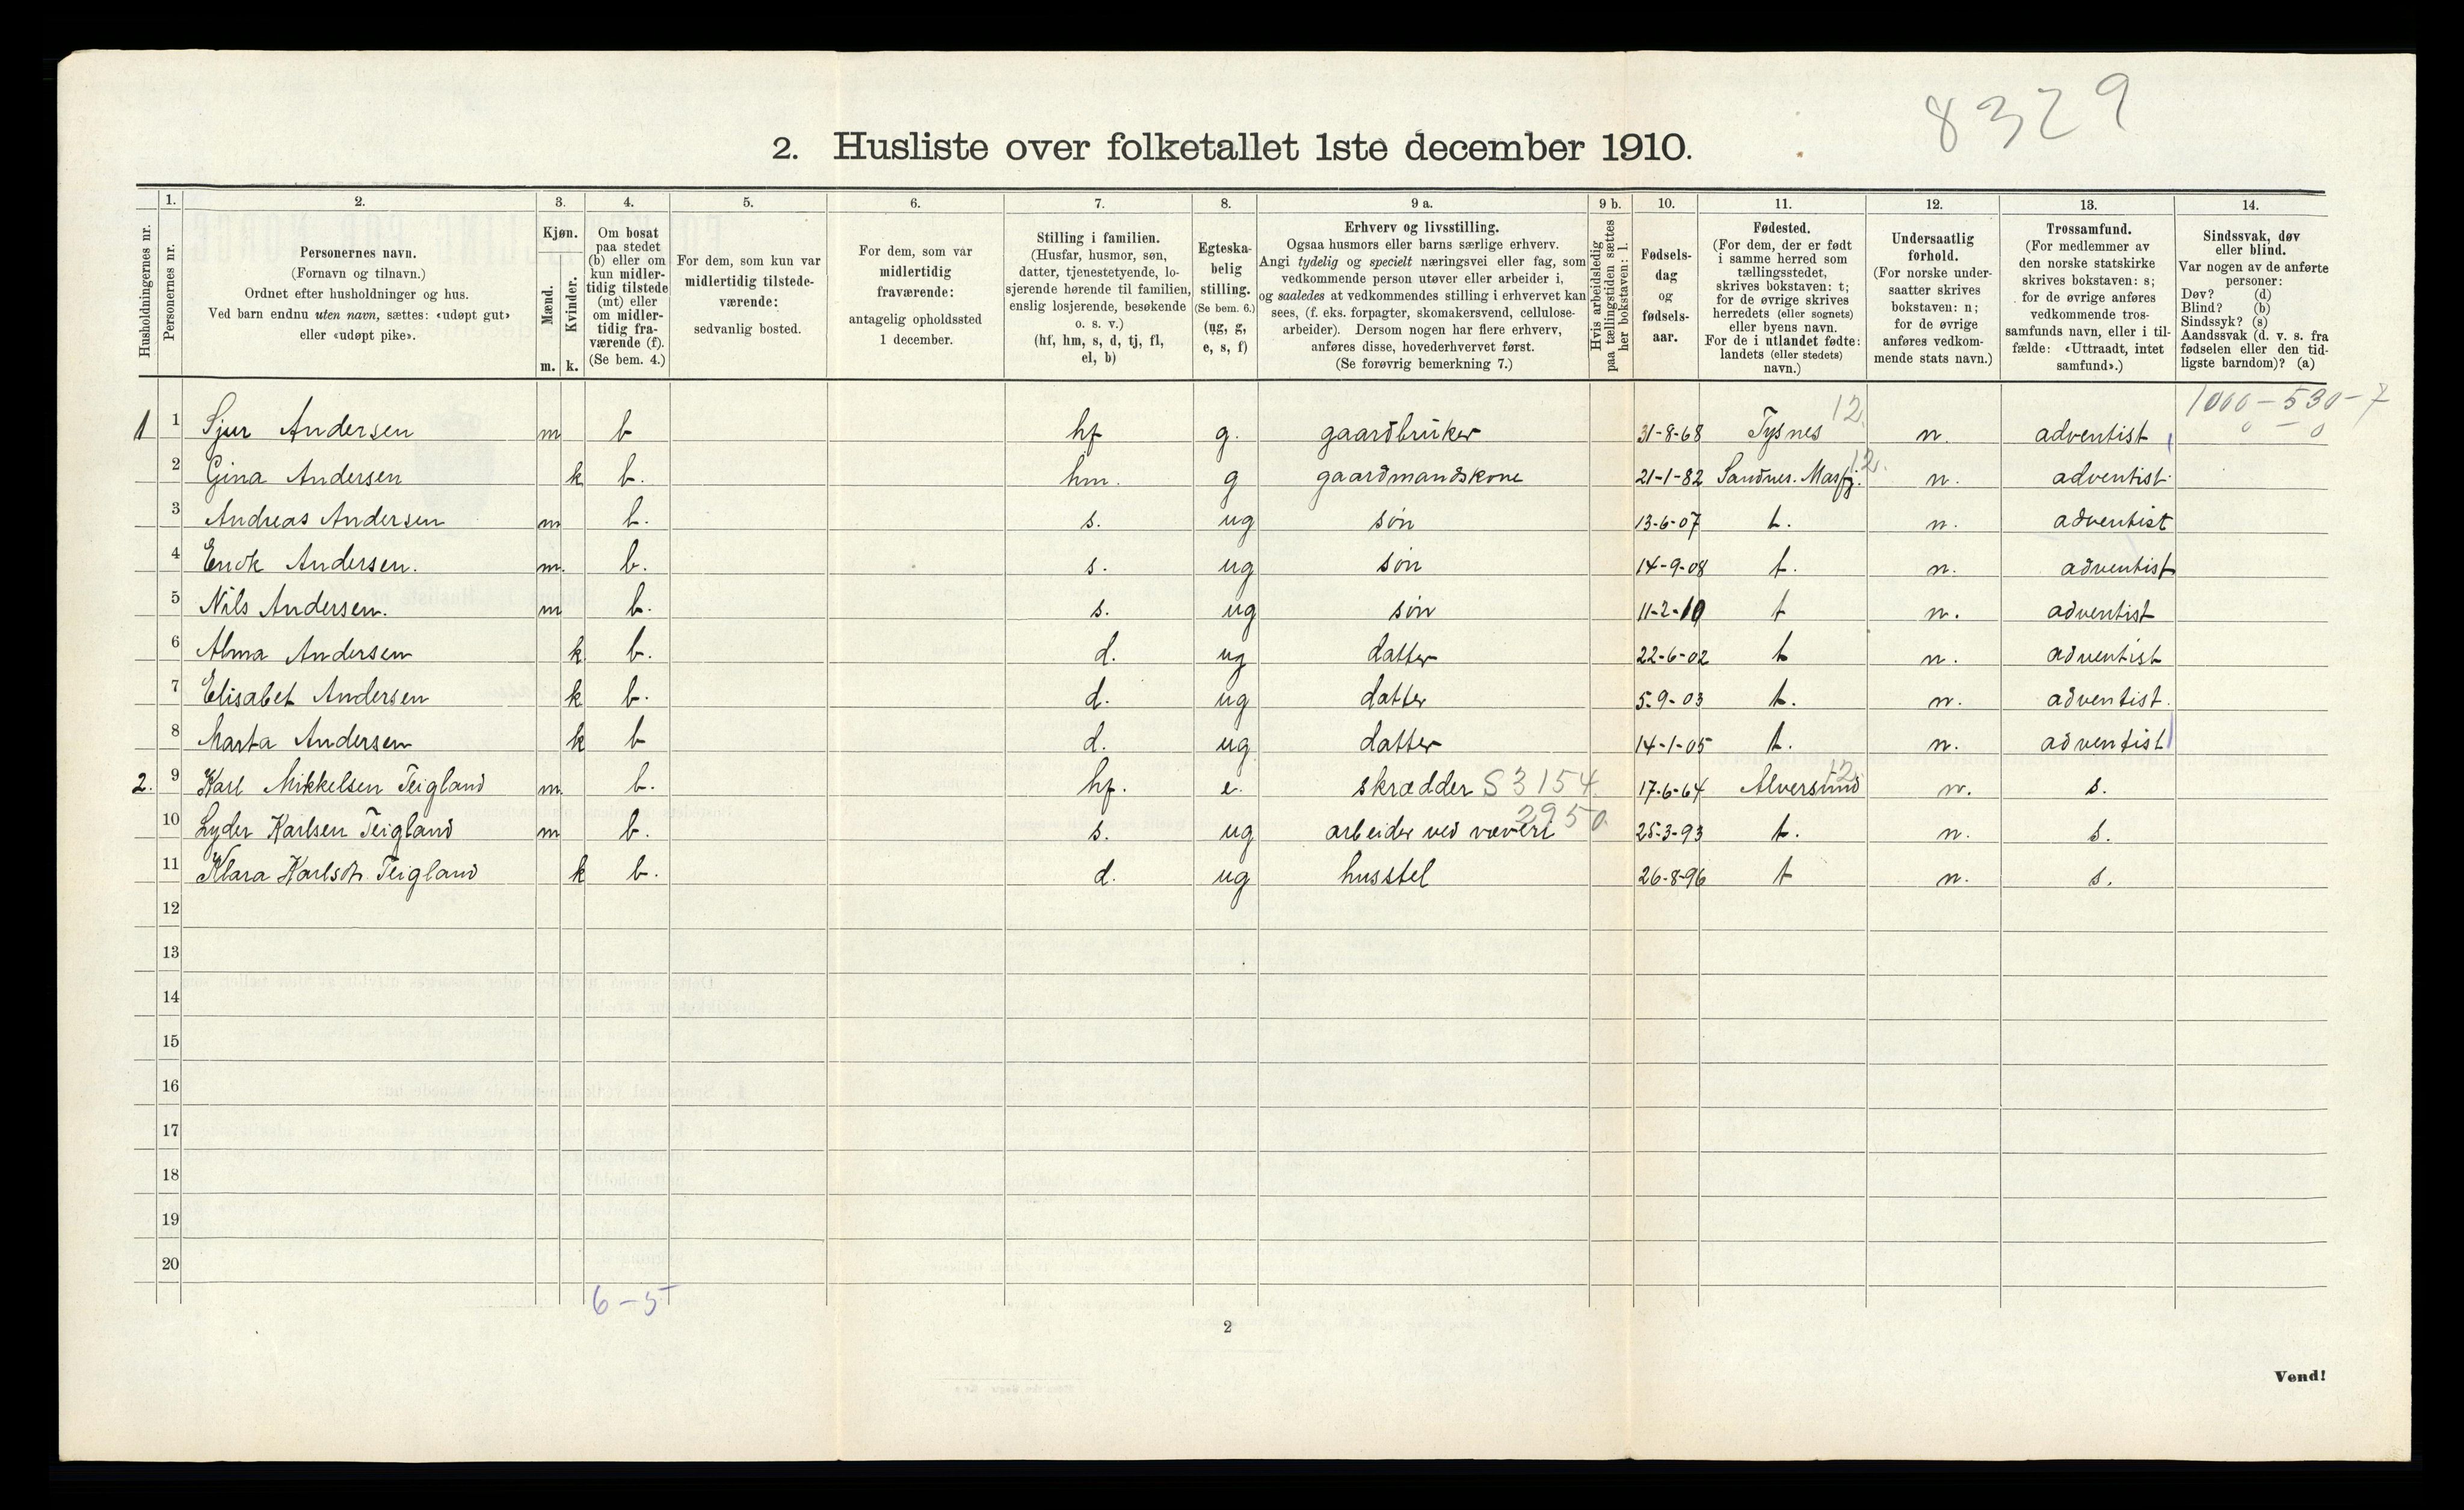 8329
2. Husliste over folketallet 1ste december 1910.
Husholdningernes nr.
1. Personernes nr.
2. Personernes navn. (Fornavn og tilnavn.) Ordnet efter husholdninger og hus. Ved barn endnu uten navn, sættes: «udøpt gut» eller «udøpt pike».
3. Kjøn. Mænd. m. Kvinder. k.
4. Om bosat paa stedet (b) eller om kun midlertidig tilstede (mt) eller om midlertidig fraværende (f). (Se bem. 4.)
5. For dem, som kun var midlertidig tilstedeværende: sedvanlig bosted.
6. For dem, som var midlertidig fraværende: antagelig opholdssted 1 december.
7. Stilling i familien. (Husfar, husmor, søn, datter, tjenestetyende, losjerende hørende til familien, enslig losjerende, besøkende o. s. v.) (hf, hm, s, d, tj, fl, el, b)
8. Egteskabelig stilling. (Se bem. 6.) (ug, g, e, s, f)
9 a. Erhverv og livsstilling. Ogsaa husmors eller barns særlige erhverv. Angi tydelig og specielt næringsvei eller fag, som vedkommende person utøver eller arbeider i, og saaledes at vedkommendes stilling i erhvervet kan sees, (f. eks. forpagter, skomakersvend, cellulosearbeider). Dersom nogen har flere erhverv, anføres disse, hovederhvervet først. (Se forøvrig bemerkning 7.)
9 b. Hvis arbeidsledig paa tællingstiden sættes her bokstaven: l.
10. Fødselsdag og fødselsaar.
11. Fødested. (For dem, der er født i samme herred som tællingsstedet, skrives bokstaven: t; for de øvrige skrives herredets (eller sognets) eller byens navn. For de i utlandet fødte: landets (eller stedets) navn.)
12. Undersaatlig forhold. (For norske undersaatter skrives bokstaven: n; for de øvrige anføres vedkommende stats navn.)
13. Trossamfund. (For medlemmer av den norske statskirke skrives bokstaven: s; for de øvrige anføres vedkommende trossamfunds navn, eller i tilfælde: «Uttraadt, intet samfund».)
14. Sindssvak, døv eller blind. Var nogen av de anførte personer: Døv? (d) Blind? (b) Sindssyk? (s) Aandssvak (d. v. s. fra fødselen eller den tidligste barndom)? (a)
1000-530-7
0 - 0
1 1 Sjur Andersen m b hf g. gaardbruker 31-8-68 Tysnes 12. n. adventist
2 Gina Andersen k b. hm. g gaardmandskone 21-1-82 Sandnes. Masfj. 12. n. adventist.
3 Andreas Andersen m b. s. ug søn 13-6-07 t. n. adventist
4 Enok Andersen. m. b. s. ug søn 14-9-08 t. n. adventist
5 Nils Andersen. m b. s. ug søn 11-2-10 t n. adventist
6 Alma Andersen k b. d. ug datter 22-6-02 t n. adventist
7 Elisabet Andersen k b. d. ug datter 5-9-03 t. n. adventist.
8 Marta Andersen k b d. ug datter 14-1-05 t. n. adventist
2. 9 Karl Mikkelsen Teigland m. b. hf. e. skrædder S 3154 17-6-64 Alversund 12. n. s.
10 Lyder Karlsen Teigland m b. s. ug arbeider ved væveri 2950. 25-3-93 t. n. s.
11 Klara Karlsdt. Teigland k b. d. ug husstel 26-8-96 t n. s.
12
13
14
15
16
17
18
19
20
6-5
2
Vend!